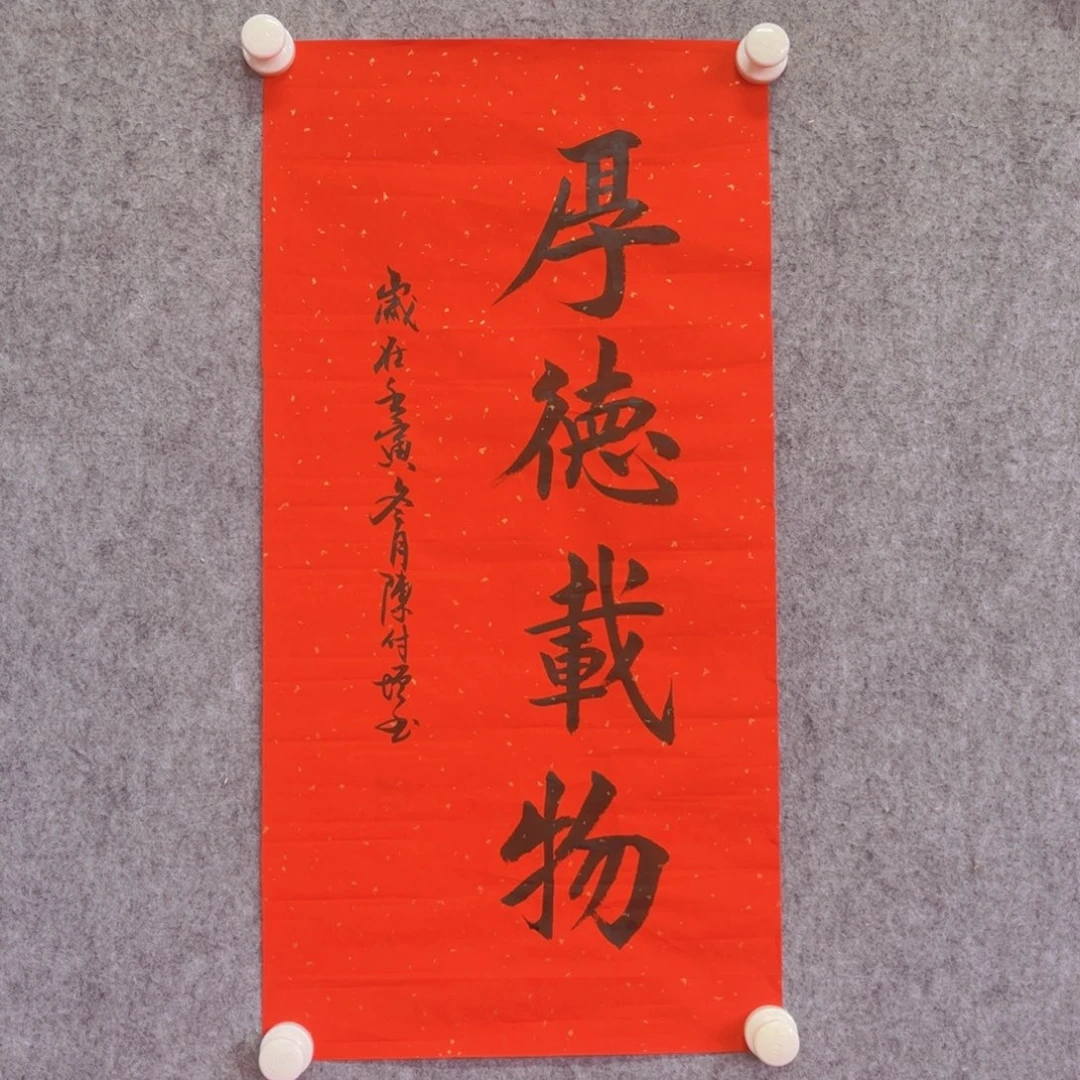 厚德載物
歲在壬寅冬月陳付增书